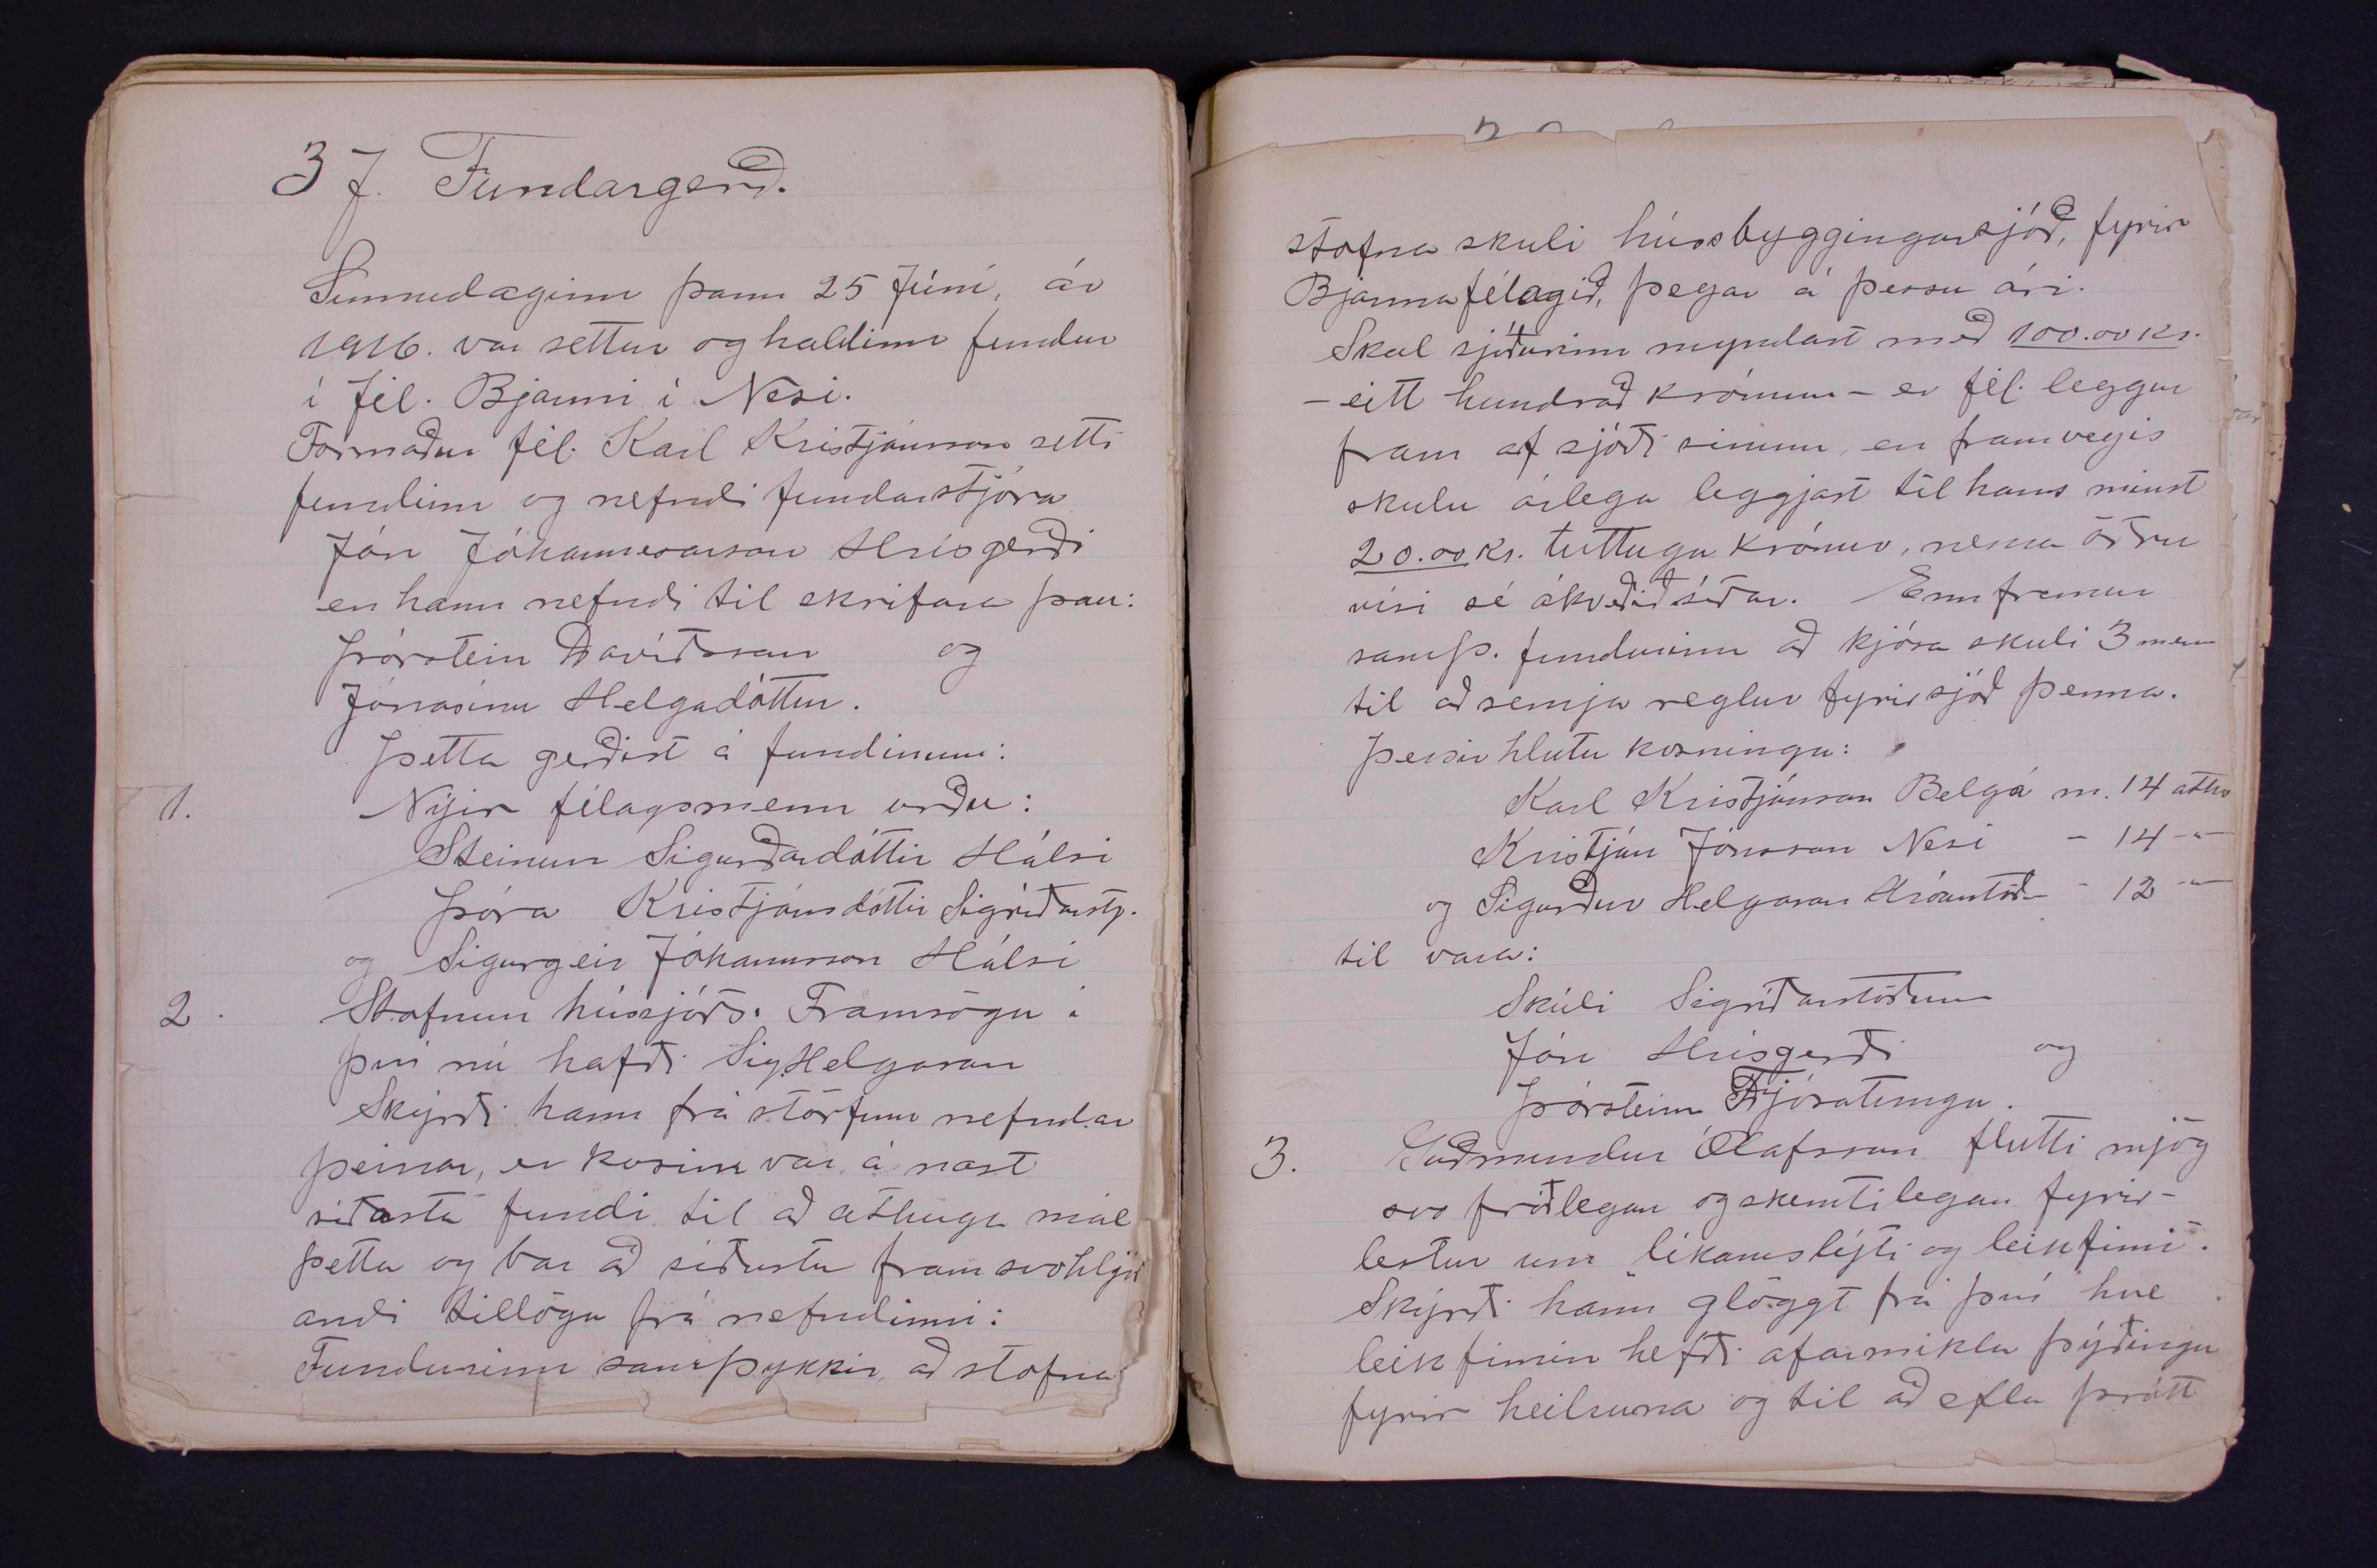 37. Fundargerð.
Sunnudaginn þann 25 Júní, ár
1916. var settur og haldinn fundur
í fél. Bjarmi í Nesi.
Formaður fél. Karl Kristjánsson setti
fundinn og nefndi fundarstjóra
Jón Jóhannesarson Hrísgerði
en hann nefndi til skrifara þau:
Þórstein Davíðsson og
Jónasínu Helgadóttur.
Þetta gerðist á fundinum:
1. Nýir félagsmenn urðu:
Steinun Sigurðardóttir Hálsi
Þóra Kristjánsdóttir Sigríðarstþ.
og Sigurgeir Jóhannsson Hálsi
2. Stofnun hússjóðs. Framsögu í
því nú hafði Sig. Helgason
Skýrði hann frá störfum nefndar
þeirrar, er kosinn var á næst
síðasta fundi til að athuga mál
þetta og bar að síðustu fram svohljóð
andi tillögu frá nefndinni:
Fundurinn samþykkir, að stofna
stofna skuli hússbyggingarsjóð, fyrir
Bjarmafélagið, þegar á þessu ári.
Skal sjóðurinn myndast með 100.00 kr.
- eitt hundrað krónum - er fél. leggur
fram af sjóði sínum, en framvegis
skulu árlega leggjast til hans minst
20.00 kr. tuttugu krónur, nema öðru
vísi sé ákveðið síðar. Enn fremur
samþ. fundurinn að kjósa skuli 3 menn
til að semja reglur fyrir sjóð þenna.
Þessir hlutu kosningu:
Karl Kristjánsson Belgá m. 14 atkv
Kristján Jónsson Nesi - 14 -"-
og Sigurður Helgason Hróarstöð - 12 -"-
til vara:
Skúli Sigríðarstöðum
Jón Hrísgerði og
Þórsteinn Fnjóskatungu.
3. Guðmundur Ólafsson flutti mjög
svo fróðlegan og skemtilegan fyrir-
lestur um "líkamslýti og leikfimi".
Skýrði hann glöggt frá því hve
leikfimin hefði afarmikla þýðingu
fyrir heilsuna og til að efla þrótt